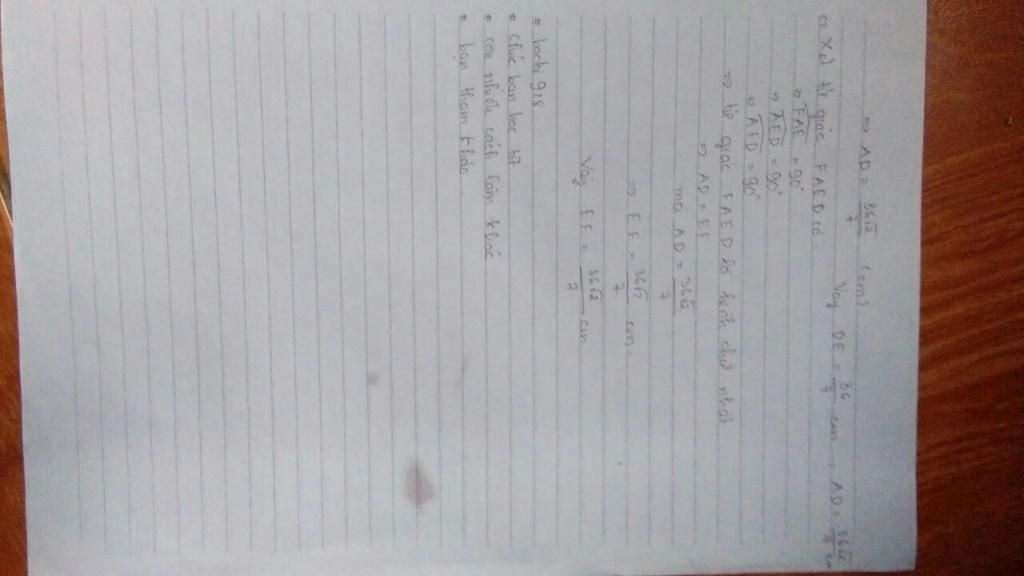 ⇒ AD = 36√2/7 (cm). Vậy DE = 36/7 cm, AD = 36√2/7 cm
c) Xét tứ giác FAED có
⇒ FAE = 90°
⇒ AED = 90°
⇒ AFD = 90°
⇒ tứ giác FAED là hình chữ nhật
⇒ AD = EF
mà AD = 36√2/7
⇒ EF = 36√2/7 cm.
Vậy EF = 36√2/7 cm
# bachi 928
• chúc bạn học tốt
• còn nhiều cách làm khác
• bạn tham khảo